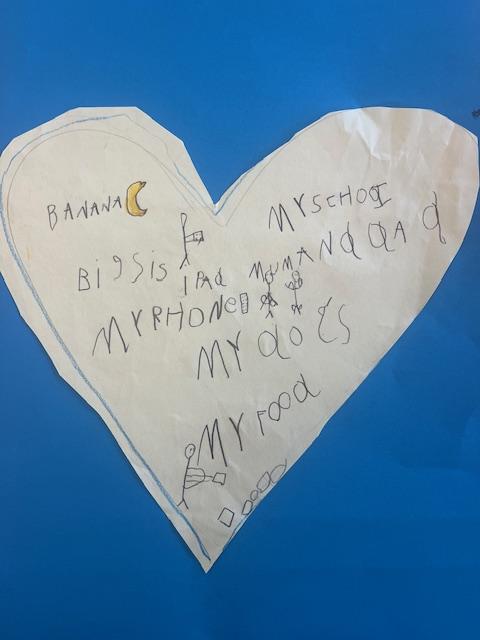 BANANA
MYSCHOOL
BigSis
IPAd
MUMANddAd
MYPHONe
MY doGS
MY FOOd